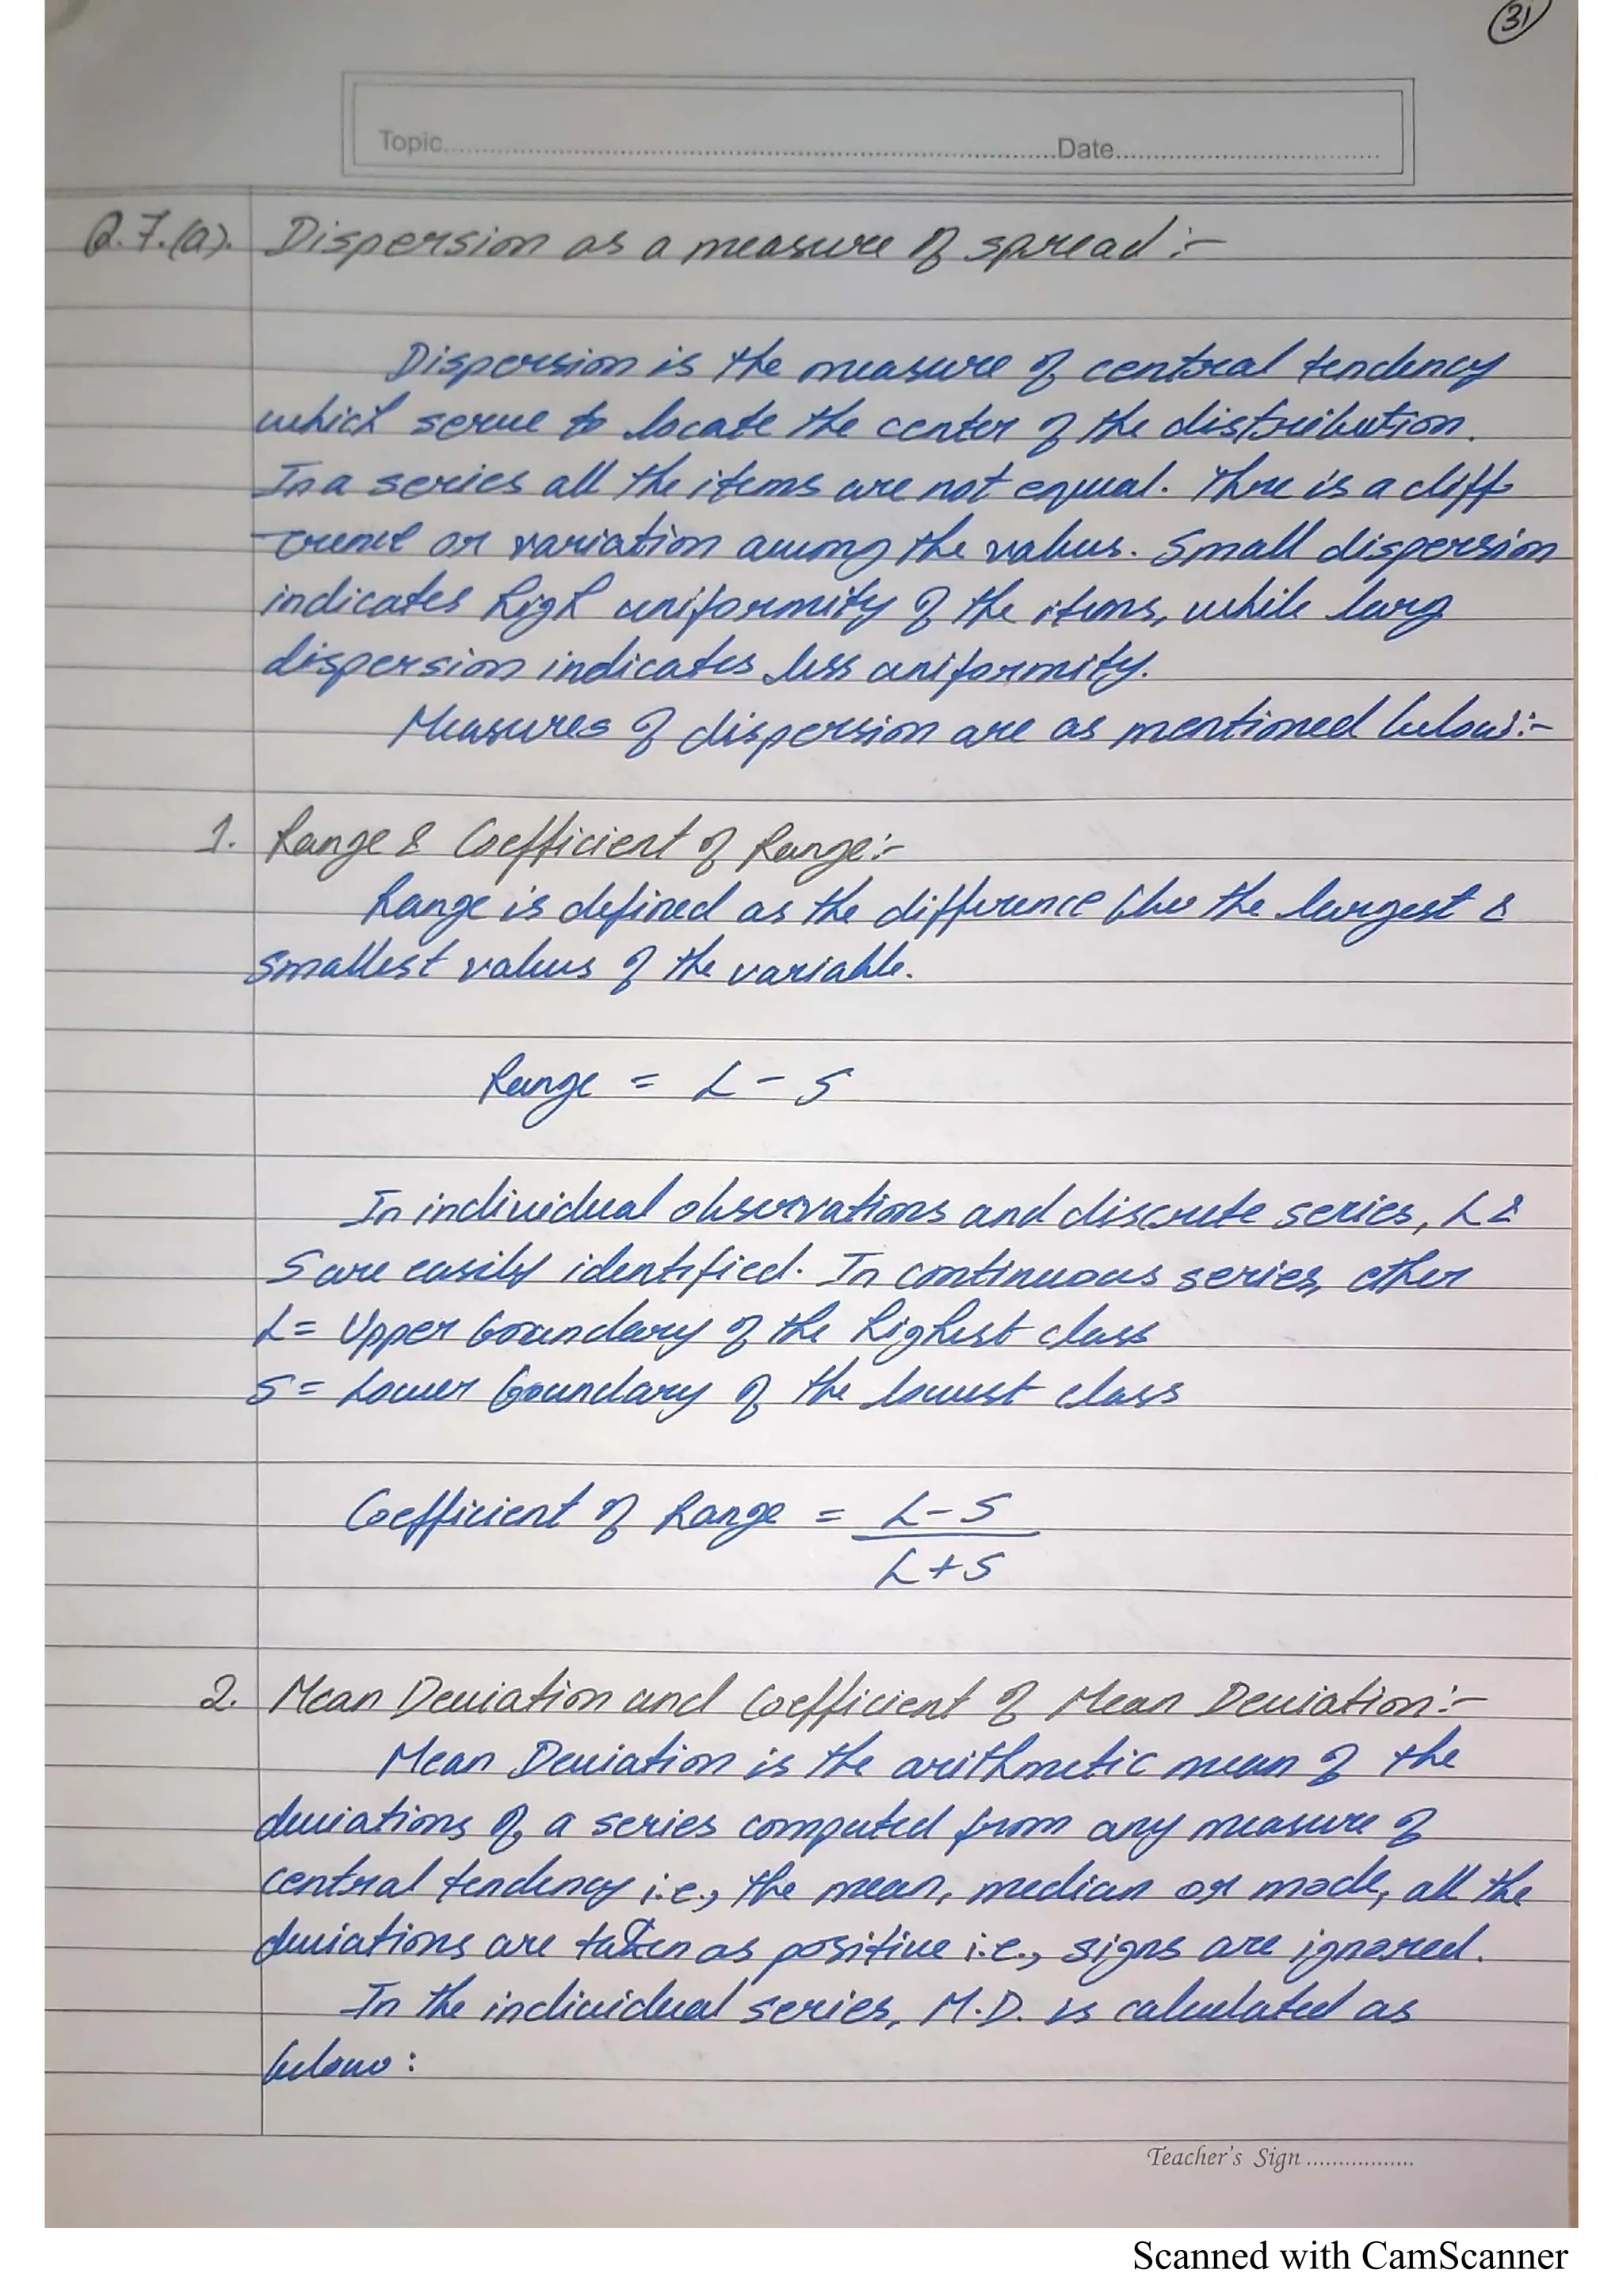 31
Topic Date
Q.7.(a). Dispersion as a measure of spread :-
Dispersion is the measure of central tendency
which serve to locate the center of the distribution.
In a series all the items are not equal. There is a diff
-erence or variation among the values. Small dispersion
indicates high uniformity of the items, while larg
dispersion indicates less uniformity.
Measures of dispersion are as mentioned below:-
1. Range & Coefficient of Range:-
Range is defined as the difference b/w the largest &
smallest values of the variable.
Range = L - S
In individual observations and discrete series, L &
S are easily identified. In continuous series, other
L = Upper boundary of the highest class
S = Lower boundary of the lowest class
Coefficient of Range = L - S
L + S
2. Mean Deviation and Coefficient of Mean Deviation:-
Mean Deviation is the arithmetic mean of the
deviations of a series computed from any measure of
central tendency i.e., the mean, median or mode, all the
deviations are taken as positive i.e., signs are ignored.
In the individual series, M.D. is calculated as
below :
Teacher's Sign
Scanned with CamScanner